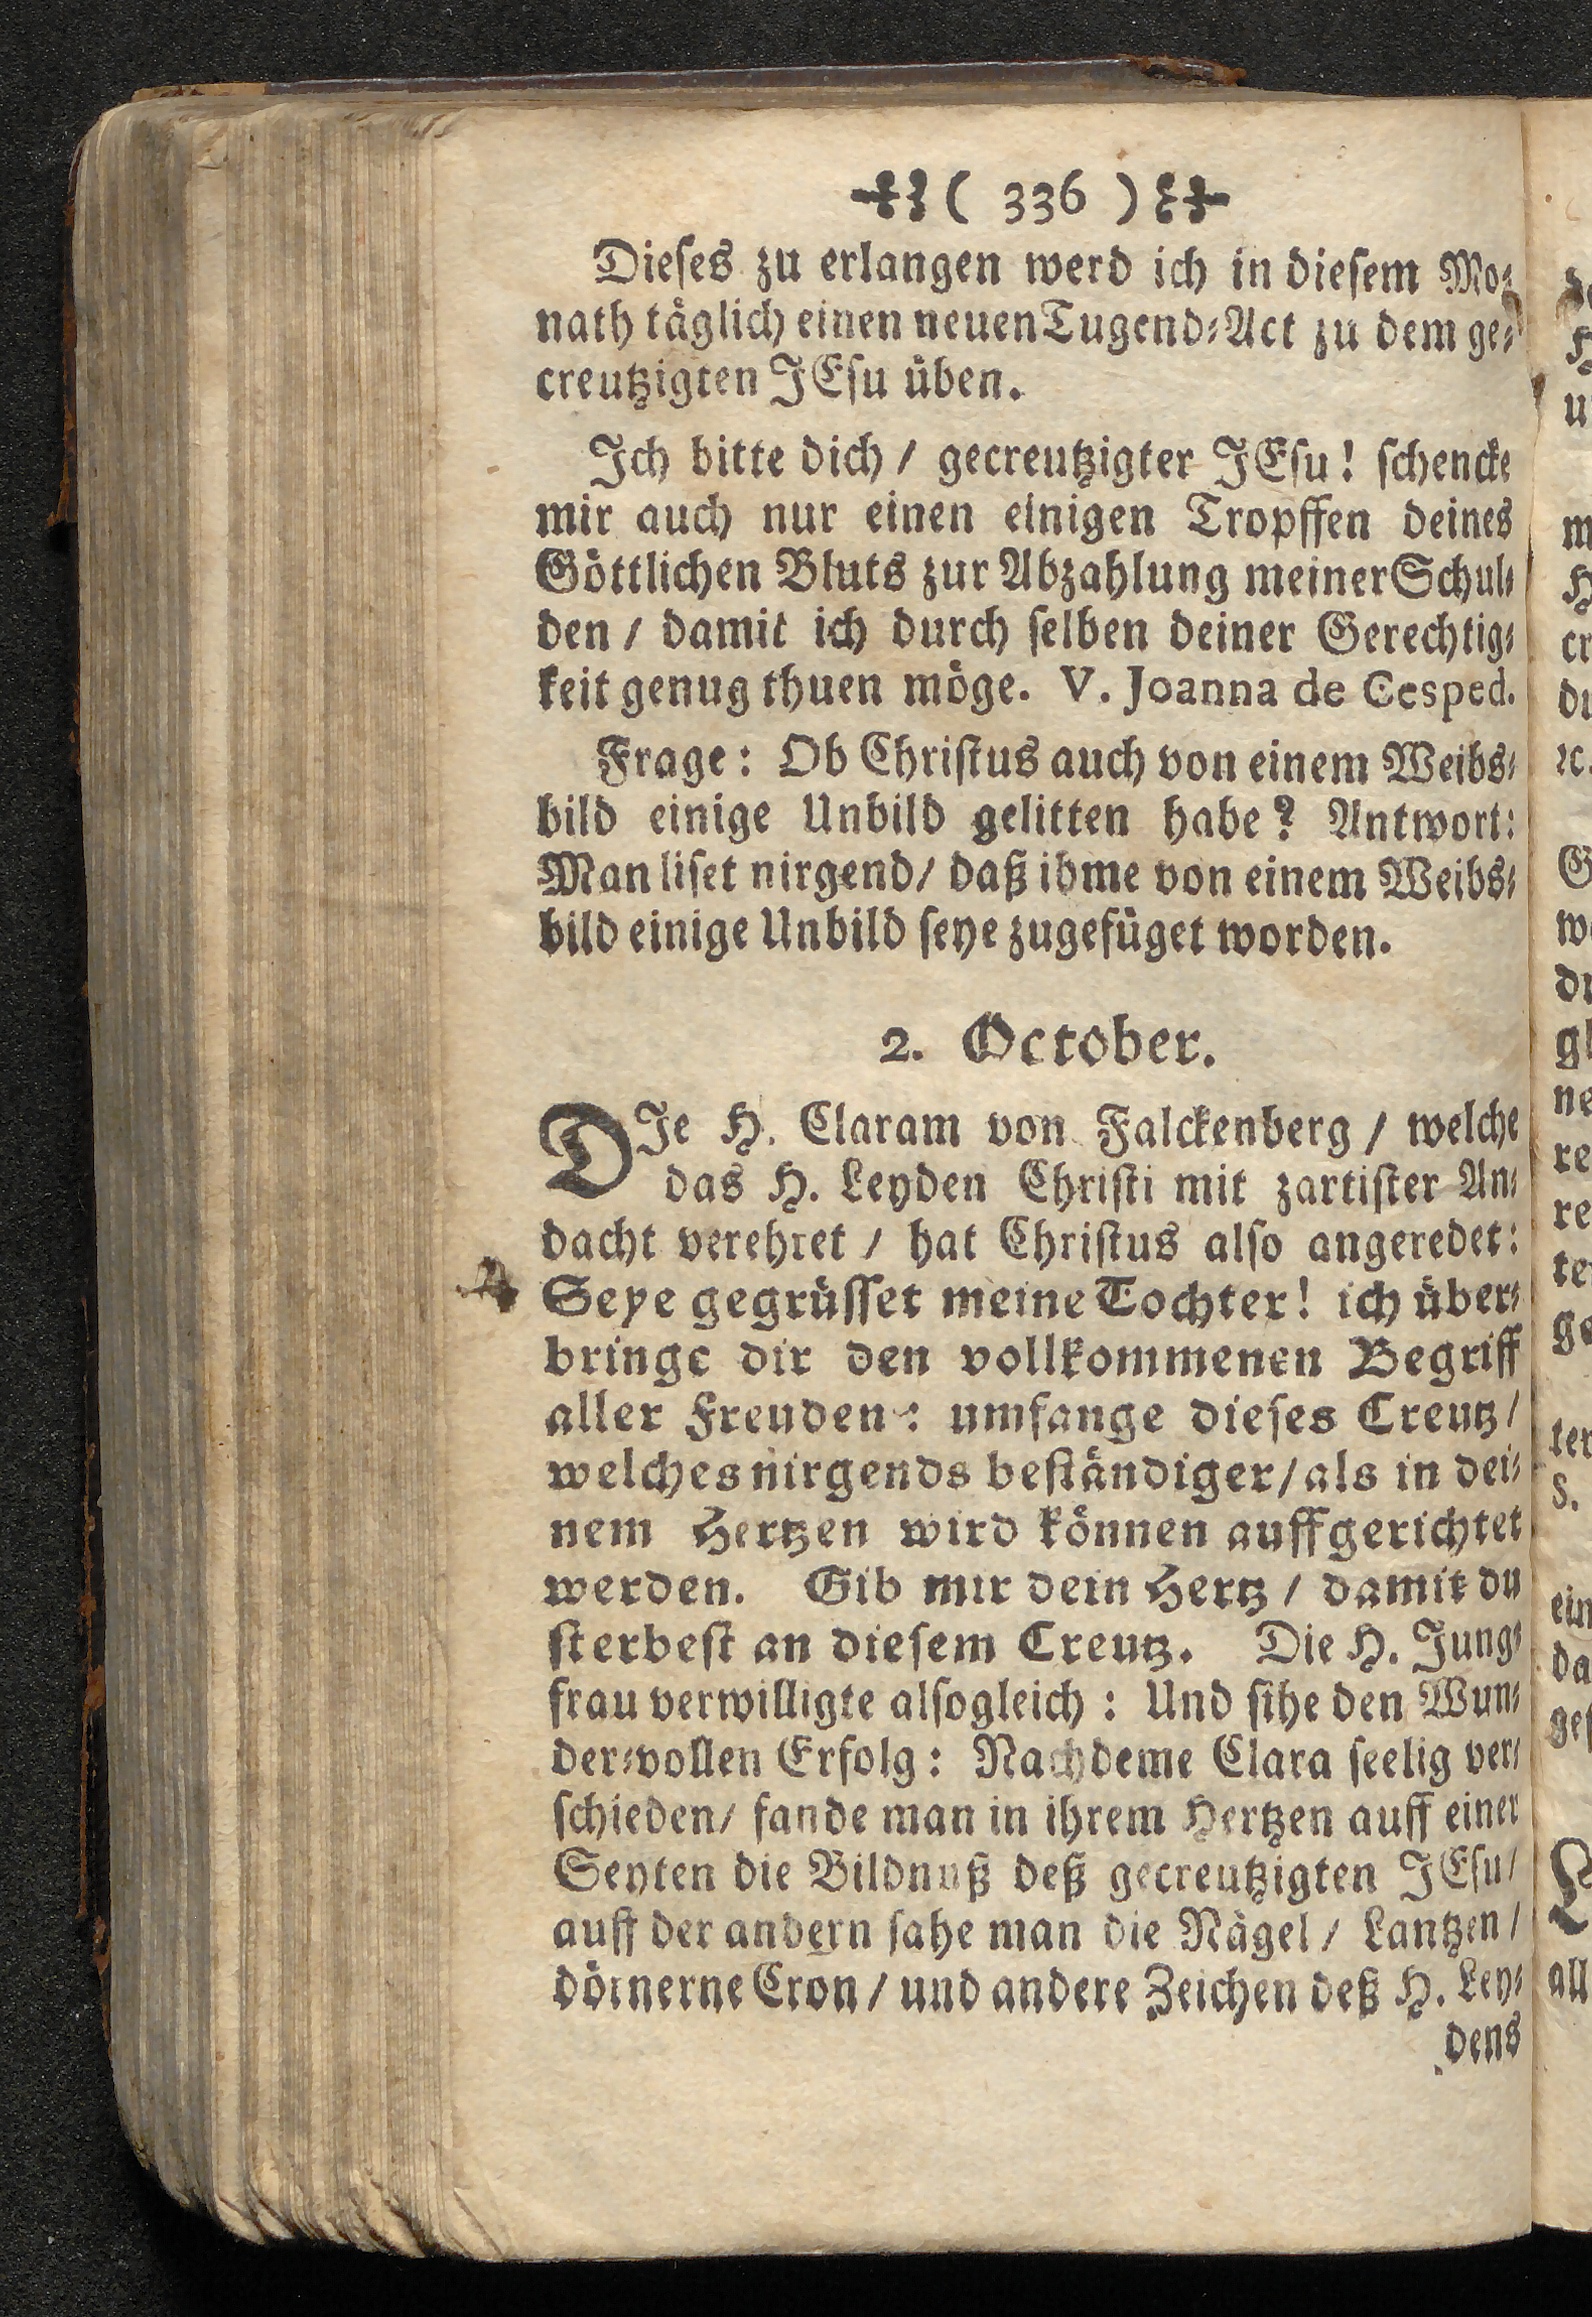 ( 336 )
Dieſes zu erlangen werd ich in dieſem Mo⸗
nath täglich einen neuen Tugend⸗Act zu dem ge⸗
creutzigten JEſu üben.
Ich bitte dich / gecreutzigter JEſu! ſchencke
mir auch nur einen einigen Tropffen deines
Göttlichen Bluts zur Abzahlung meiner Schul⸗
den / damit ich durch ſelben deiner Gerechtig⸗
keit genug thuen möge. V. Joanna de Cesped.
Frage: Ob Chriſtus auch von einem Weibs⸗
bild einige Unbild gelitten habe? Antwort:
Man liſet nirgend / daß ihme von einem Weibs⸗
bild einige Unbild ſeye zugefüget worden.
2. October.
DIe H. Claram von Falckenberg / welche
das H. Leyden Chriſti mit zartiſter An⸗
dacht verehret / hat Chriſtus alſo angeredet:
Seye gegrüſſet meine Tochter! ich über⸗
bringe dir den vollkommenen Begriff
aller Freuden: umfange dieſes Creutz /
welches nirgends beſtändiger / als in dei⸗
nem Hertzen wird können auffgerichtet
werden. Gib mir dein Hertz / damit du
ſterbeſt an dieſem Creutz. Die H. Jung⸗
frau verwilligte alſogleich: Und ſihe den Wun⸗
der⸗vollen Erfolg: Nachdeme Clara ſeelig ver⸗
ſchieden / fande man in ihrem Hertzen auff einer
Seyten die Bildnuß deß gecreutzigten JEſu /
auff der andern ſahe man die Nägel / Lantzen /
dörnerne Cron / und andere Zeichen deß H. Ley⸗
dens